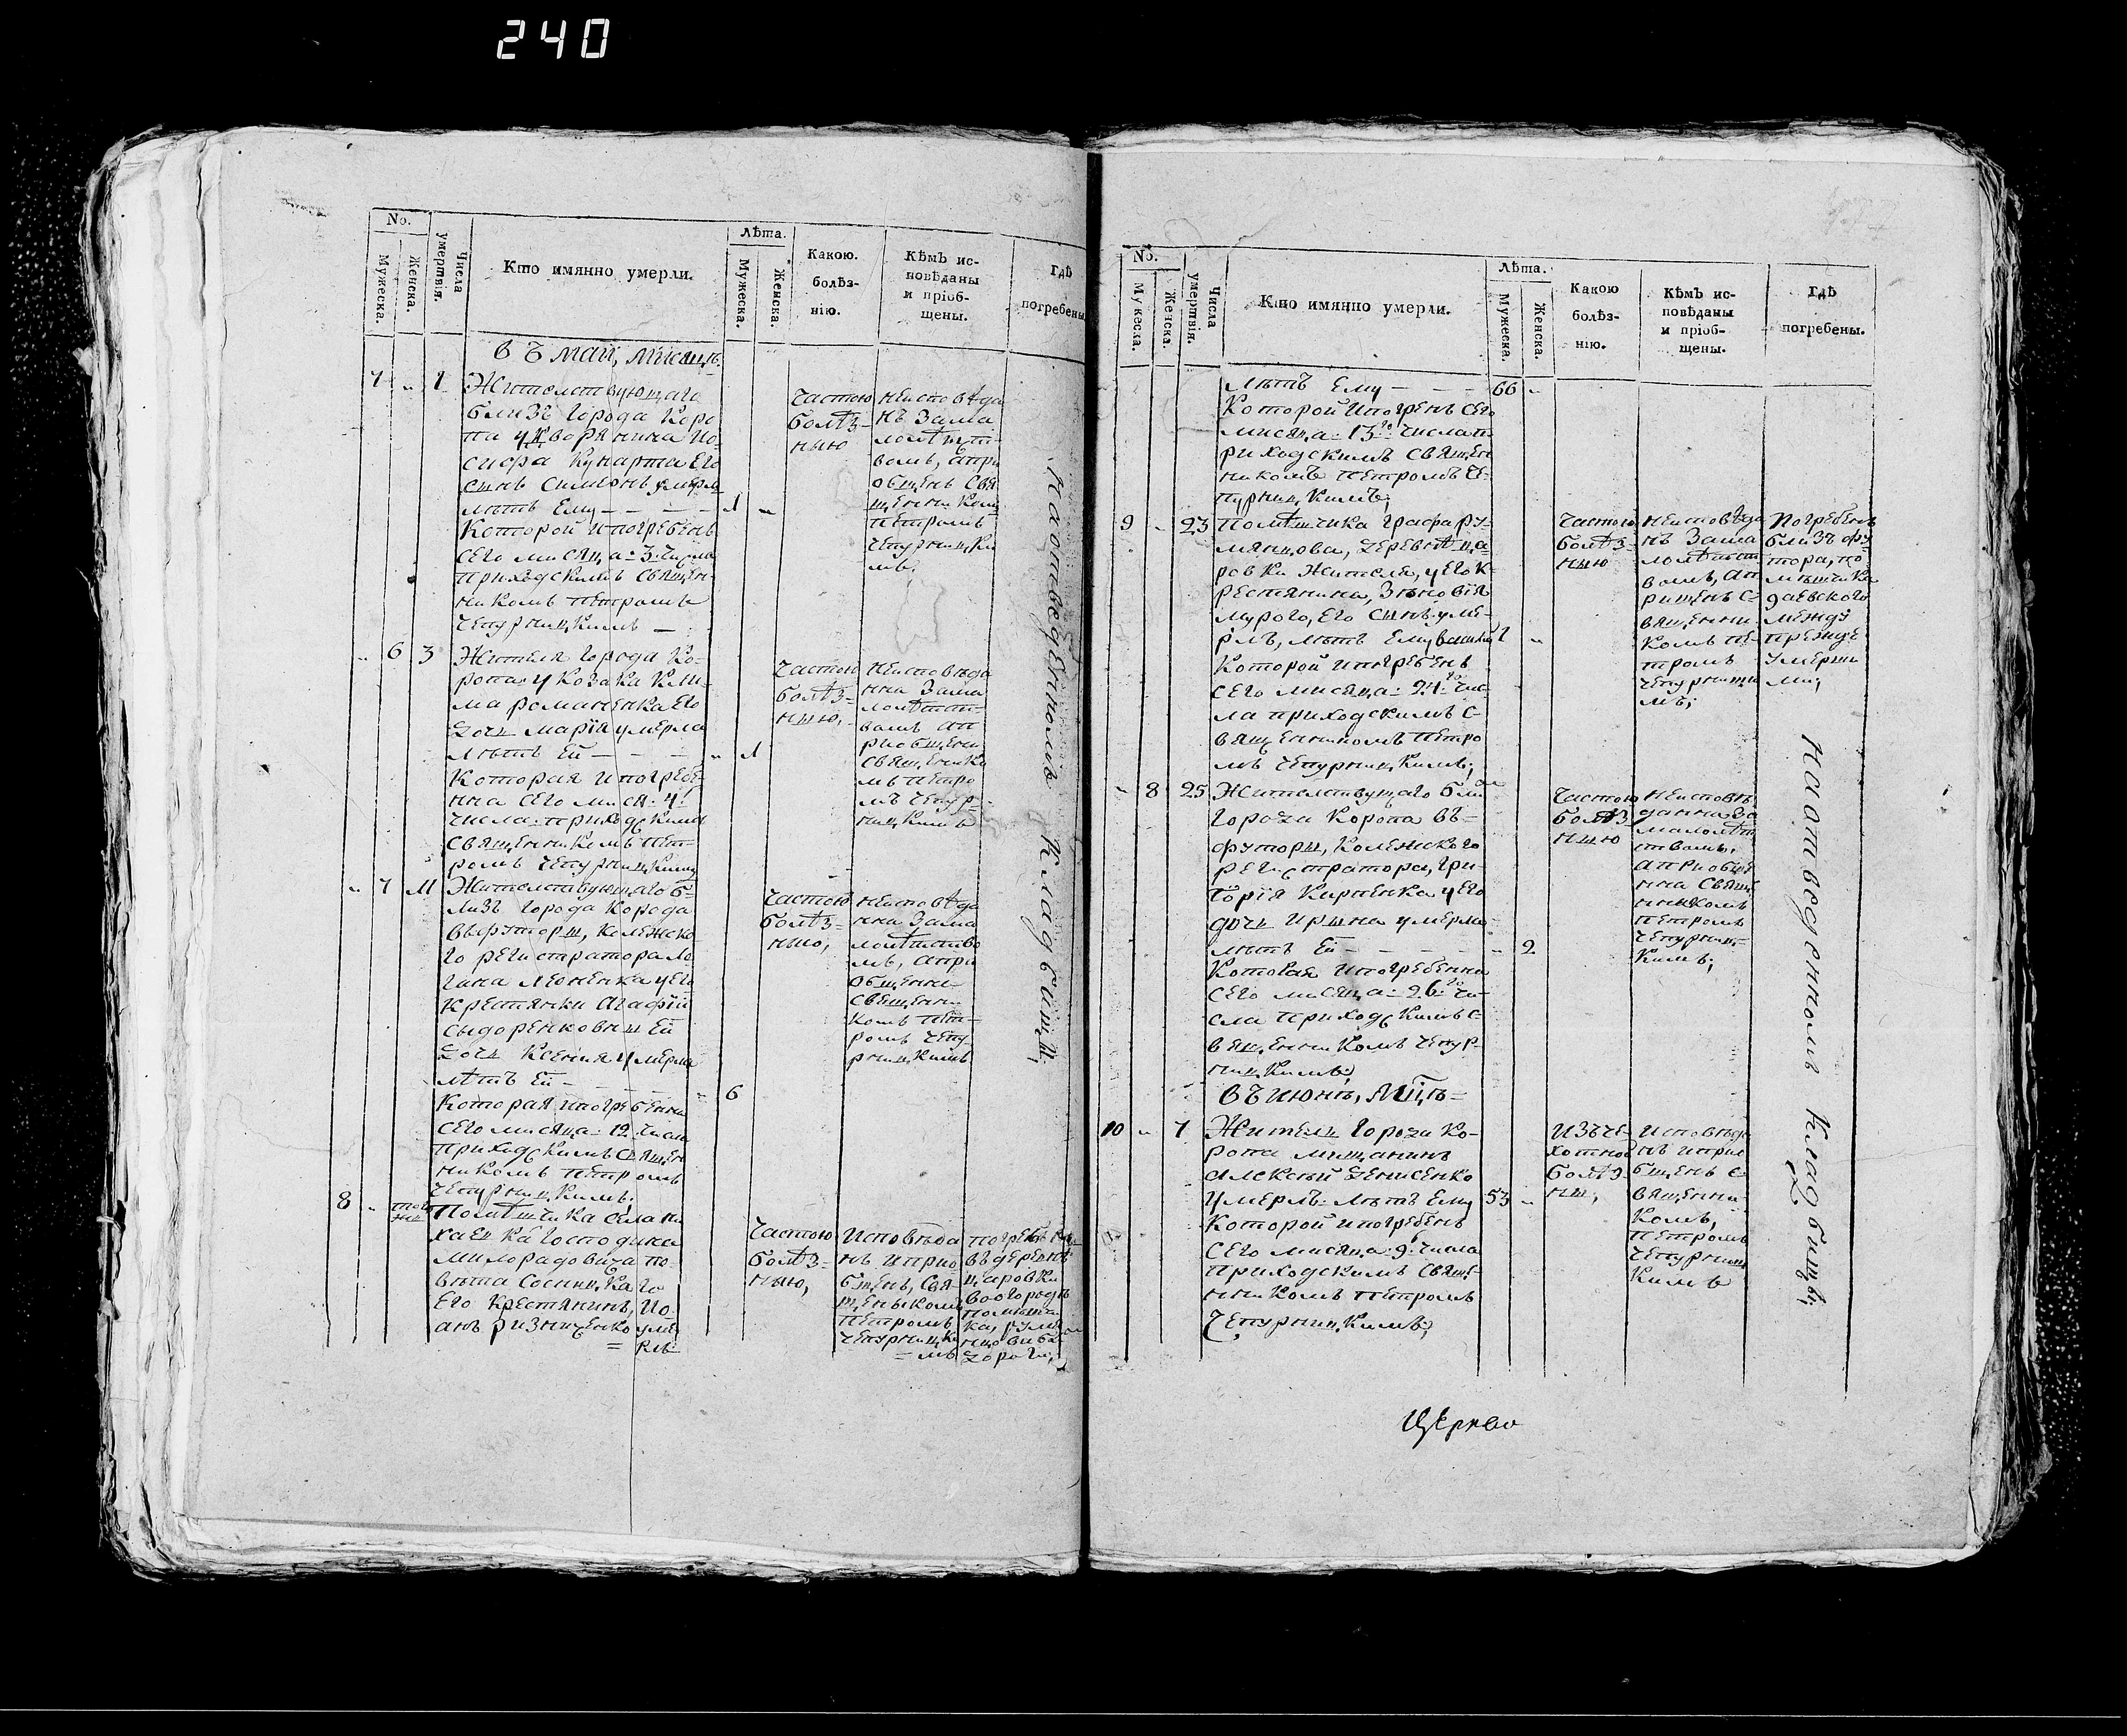 240
No.
Мужеска.
Женска.
Числа умертвія.
Кто имянно умерли.
Лѣта.
Мужеска.
Женска.
Какою.
болѣз-
нію.
Кѣмъ ис-
повѣданы
и пріоб-
щены.
Гдѣ
погребены
въ маи, мисяцѣ
7 " 1 Жителствующаго
близъ города Коро
па у дворянина Ио-
сифа Кунарта его
сынъ Симеонъ умрл
лѣтъ Ему - - - - 1 "
Которой и погребенъ
сего мисяца: 3: числа
приходскимъ священ-
никомъ петромъ
Чепурницкимъ —
частою
болѣз-
нью
неисповѣда
нъ зама
лолѣтст-
вомъ, апри
общенъ свя
щеннико
петромъ
чепурницки
мъ;
" 6 3 Жителя города Ко-
ропа у козака Кли-
ма романенка его
дочь марія умерла
лѣтъ Ей - - - " 1
Которая и погребе-
нна сего мися: 4:
числа приходскимъ
священникомъ пет-
ромъ чепурницким
частою
болѣз-
нью,
неисповѣда
нна зама
лолѣтст-
вомъ ап
риобщенн
священико
мъ петро
мъ чепур-
ницкимъ
" 7 11 Жителствующаго б-
лизъ города Корода
вхуторы, колежско-
го регистратора Ло-
гина леоненка у его
крестянки агафіи
сыдоренковны Ей
дочь Ксенія умерла
лѣтъ Ей - - - " 6
Которая и погребенна
сего мисяца: 12: числа
приходскимъ священ
никомъ петромъ
чепурницкимъ;
частою
болѣз-
нью,
неисповѣда
нна зама
лолѣтство
мъ, апри
общенн-
священн-
комъ пет-
ромъ чепу-
рницкимъ
8 " Помѣщика села
господина
милорадовича по-
вѣта Сосницкаго
его крестянинъ, Ио-
анъ ризниченко уме
= рлъ
частою
болѣз-
нью,
исповѣда
нъ и прио-
бщенъ, свя-
щеникомъ
петромъ
чепурницки
= мъ
погребенъ
въ деревнѣ
царовки
вогородѣ
наотведенномъ кладбищѣ;
No.
Мужеска.
Женска.
Числа умертвія.
Кто имянно умерли.
Лѣта.
Мужеска.
Женска.
Какою
болѣз-
нію.
Кѣмъ ис-
повѣданы
и пріоб-
щены.
Гдѣ
погребены.
лѣтъ Ему - - - 66 "
Которой и погренъ сего
мисяца: 13го числа п-
риходскимъ священ
никомъ петромъ че-
пурницкимъ;
9 " 23 помѣщика графа ру-
мянцова, деревни ца-
ровки жителя, у его к-
рестянина, Зиновія
мурого, его сынъ уме-
рлъ, лѣтъ Ему 1 "
Которой и погребенъ
сего мисяца: 24: чис-
ла приходскимъ с-
вященникомъ петро
мъ чепурницкимъ;
частою
болѣз-
нью
неисповѣда
нъ зама
лолѣтст
вомъ, ап
рищенъ с-
вященни-
комъ пе-
тромъ
чепурницки
мъ;
Погребенъ
близъ фу-
тора, по-
мѣщика
даевского
между
прежде
умерши
ми;
" 8 25 Жителствущаго бли
города Коропа въ-
футоры, Колежского
регистратора, гри-
горія Карпенка у его
дочь Ирына умерла
лѣтъ Ей - - - - " 2
Которая и погребенна
сего мисяца: 26: чи-
сла приходскимъ с-
вященникомъ чепур-
ницкимъ;
частою
болѣз-
нью
неисповѣ-
данна за
малолѣт
ствомъ,
априобще
нна свяще
нникомъ
петромъ
чепурниц-
кимъ;
въ июнѣ, мцѣ=
10 " 7 Жителъ города Ко-
ропа мищанинъ
алексѣй денисенко
умерлъ: лѣтъ Ему 53 "
Которой и погребенъ
сего мисяца: 9: числа
приходскимъ свяще-
нникомъ петромъ
Чепурницкимъ;
изъче-
хотной
болѣз-
ни,
исповѣда
нъ и прио
бщенъ с-
вященни
комъ,
петромъ
чепурниц
кимъ
наотведенномъ кладбищѣ;
Церкво